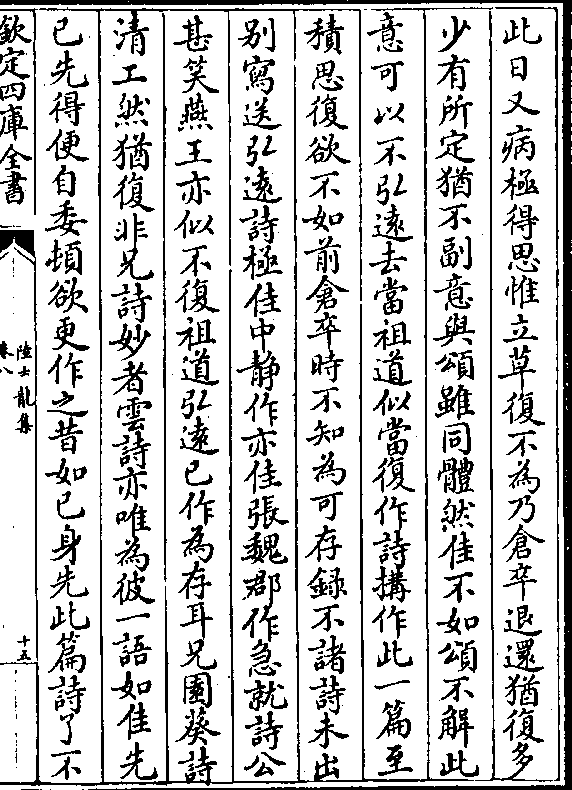 此日又病極得思惟立草復不為乃倉卒退還猶復多
少有所定猶不副意與頌雖同體然佳不如頌不解此
意可以不弘遠去當祖道似當復作詩搆作此一篇至
積思復欲不如前倉卒時不知為可存錄不諸詩未出
别寫送弘遠詩極佳中靜作亦佳張魏郡作急就詩公
甚笑燕王亦似不復祖道弘遠已作為存耳兄園葵詩
清工然猶復非兄詩妙者雲詩亦唯為彼一語如佳先
已先得便自委頓欲更作之昔如已身先此篇詩了不
欽定四庫全書
陸士龍集
卷八
十五